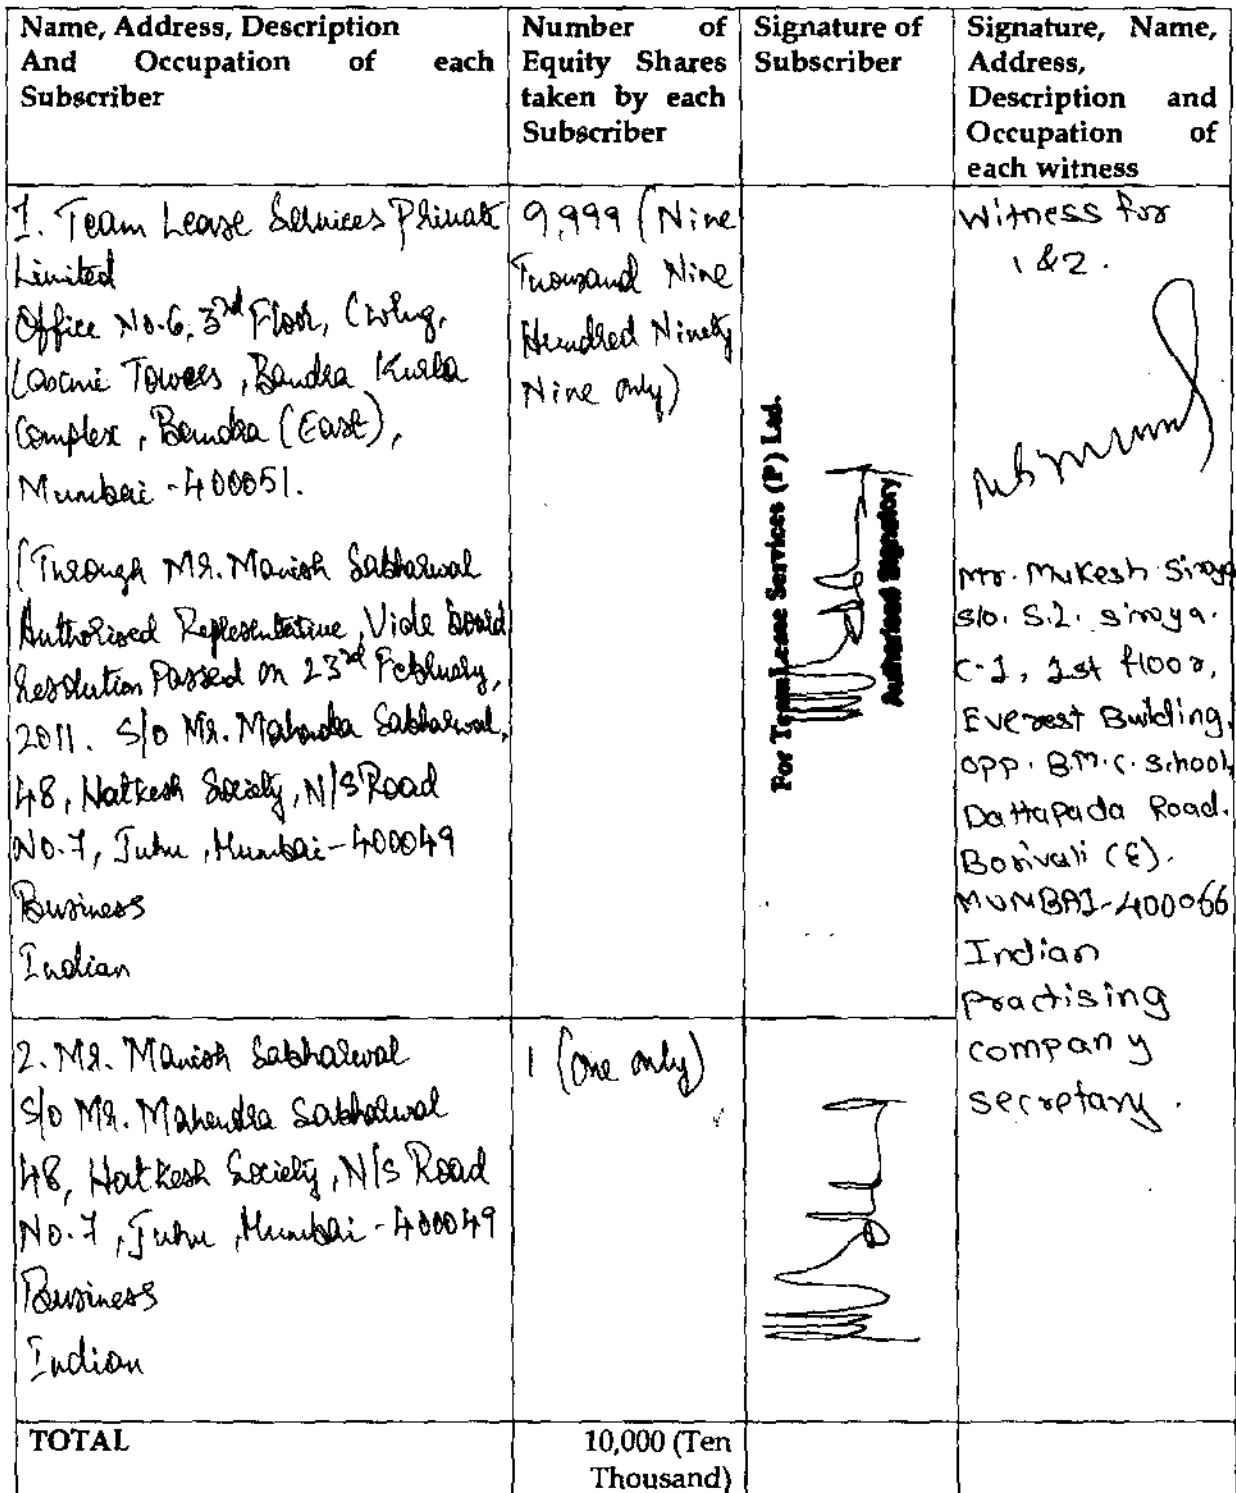 Name, Address, Description
And Occupation of each
Subscriber
Number of
Equity Shares
taken by each
Subscriber
Signature of
Subscriber
Signature, Name,
Address,
Description and
Occupation of
each witness
1. Team Lease Services Private
Limited
Office No.6, 3rd Floor, C wing,
Laxmi Towers, Bandra Kurla
Complex, Bandra (East),
Mumbai - 400051.
(Through Mr. Manish Sabharwal
Authorised Representative, Vide Board
Resolution Passed on 23rd February,
2011. S/o Mr. Mahendra Sabharwal,
48, Hatkesh Society, N/S Road
No.7, Juhu, Mumbai-400049
Business
Indian
9,999 (Nine
Thousand Nine
Hundred Ninety
Nine only)
For TeamLease Services (P) Ltd.
Authorised Signatory
Witness for
1 & 2.
Mr. Mukesh Siroya
S/o. S.L. siroya.
C-1, 1st floor,
Everest Building,
opp. B.M.C. School,
Dattapada Road.
Borivali (E).
MUMBAI-400066
Indian
Practising
company
secretary.
2. Mr. Manish Sabharwal
S/o Mr. Mahendra Sabharwal
48, Hatkesh Society, N/S Road
No.7, Juhu, Mumbai - 400049
Business
Indian
1 (One only)
TOTAL
10,000 (Ten
Thousand)